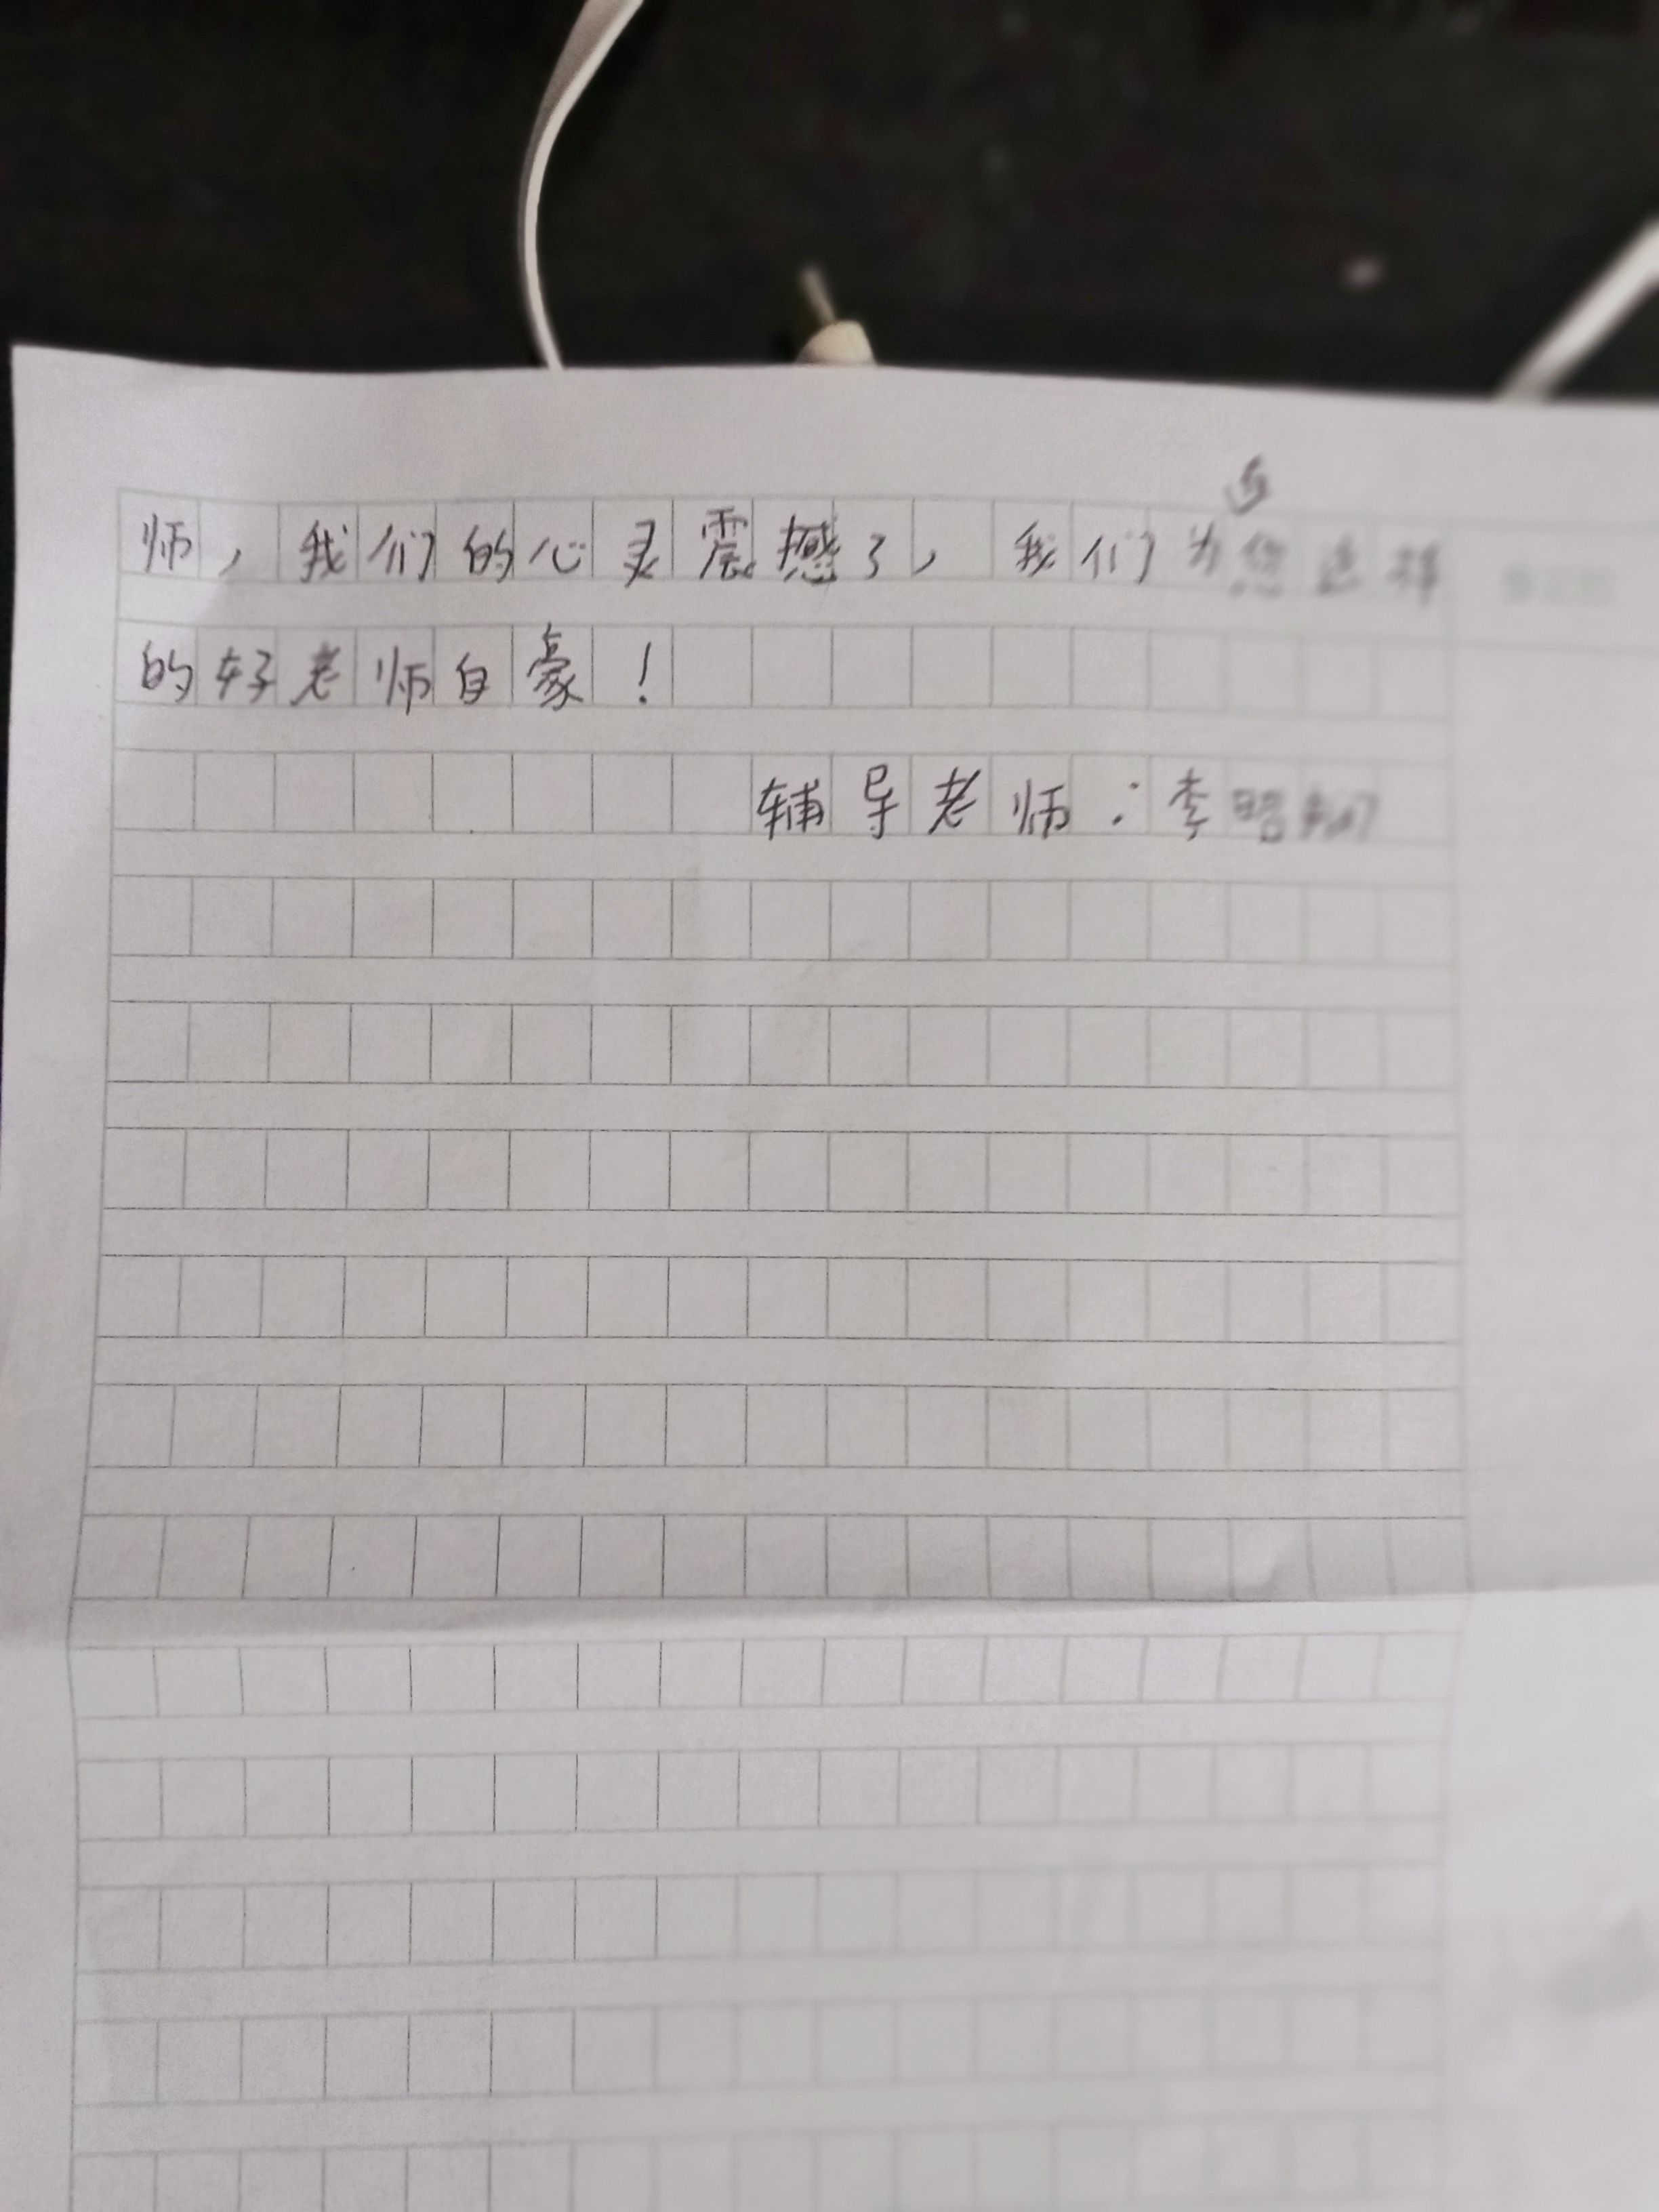 师，我们的心灵震撼了，我们为您这样
的好老师自豪！
辅导老师：李昭